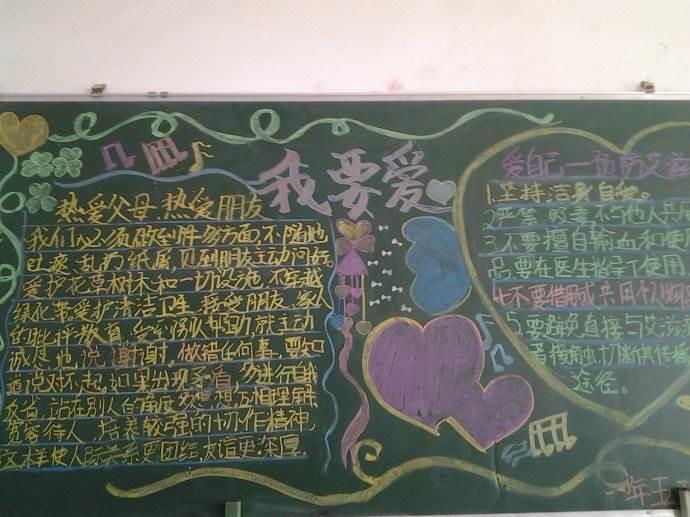 我要爱
热爱父母、热爱朋友
我们必须做到许多方面,不随地
吐痰,乱扔纸屑,见到朋友主动问好。
爱护花草树木和一切设施,不穿越
绿化带爱护清洁卫生,接受朋友、家人
的批评教育,受到别人帮助,就主动
诚恳地说谢谢。做错任何事,要知
道说对不起,如果出现矛盾,多进行自我
反省,站在别人的角度多想想,互相理解
宽容待人,培养较强的协作精神,
这样使人际关系更团结,友谊更深厚。
爱自己一预防艾滋
1.坚持洁身自爱。
2.严禁 吸毒 不与他人共用
3.不要擅自输血和使用
品要在医生指导下使用
4.不要借用或共用个人物
5.要避免直接与艾滋
着接触切断传播
途径。
一年五